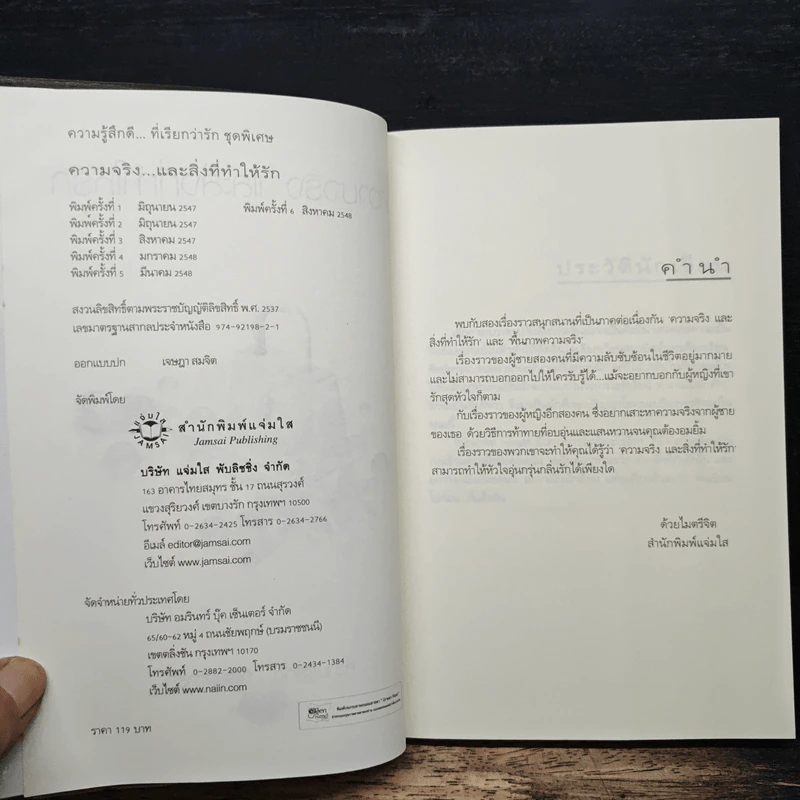 ความรู้สึกดี... ที่เรียกว่ารัก ชุดพิเศษ
ความจริง...และสิ่งที่ทำให้รัก
พิมพ์ครั้งที่ 1 มิถุนายน 2547 พิมพ์ครั้งที่ 6 สิงหาคม 2548
พิมพ์ครั้งที่ 2 มิถุนายน 2547
พิมพ์ครั้งที่ 3 สิงหาคม 2547
พิมพ์ครั้งที่ 4 มกราคม 2548
พิมพ์ครั้งที่ 5 มีนาคม 2548
สงวนลิขสิทธิ์ตามพระราชบัญญัติลิขสิทธิ์ พ.ศ. 2537
เลขมาตรฐานสากลประจำหนังสือ 974-92198-2-1
ออกแบบปก เจษฎา สมจิต
จัดพิมพ์โดย
แจ่มใส
JAMSAI
สำนักพิมพ์แจ่มใส
Jamsai Publishing
บริษัท แจ่มใส พับลิชชิ่ง จำกัด
163 อาคารไทยสมุทร ชั้น 17 ถนนสุรวงศ์
แขวงสุริยวงศ์ เขตบางรัก กรุงเทพฯ 10500
โทรศัพท์ 0-2634-2425 โทรสาร 0-2634-2766
อีเมล์ editor@jamsai.com
เว็บไซต์ www.jamsai.com
จัดจำหน่ายทั่วประเทศโดย
บริษัท อมรินทร์ บุ๊ค เซ็นเตอร์ จำกัด
65/60-62 หมู่ 4 ถนนชัยพฤกษ์ (บรมราชชนนี)
เขตตลิ่งชัน กรุงเทพฯ 10170
โทรศัพท์ 0-2882-2000 โทรสาร 0-2434-1384
เว็บไซต์ www.naiin.com
ราคา 119 บาท
คำนำ
พบกับสองเรื่องราวสนุกสนานที่เป็นภาคต่อเนื่องกัน 'ความจริง และ
สิ่งที่ทำให้รัก' และ 'พื้นภาพความจริง'
เรื่องราวของผู้ชายสองคนที่มีความลับซับซ้อนในชีวิตอยู่มากมาย
และไม่สามารถบอกออกไปให้ใครรับรู้ได้...แม้จะอยากบอกกับผู้หญิงที่เขา
รักสุดหัวใจก็ตาม
กับเรื่องราวของผู้หญิงอีกสองคน ซึ่งอยากเสาะหาความจริงจากผู้ชาย
ของเธอ ด้วยวิธีการท้าทายที่อบอุ่นและแสนหวานจนคุณต้องอมยิ้ม
เรื่องราวของพวกเขาจะทำให้คุณได้รู้ว่า 'ความจริง และสิ่งที่ทำให้รัก'
สามารถทำให้หัวใจอุ่นกรุ่นกลิ่นรักได้เพียงใด
ด้วยไมตรีจิต
สำนักพิมพ์แจ่มใส